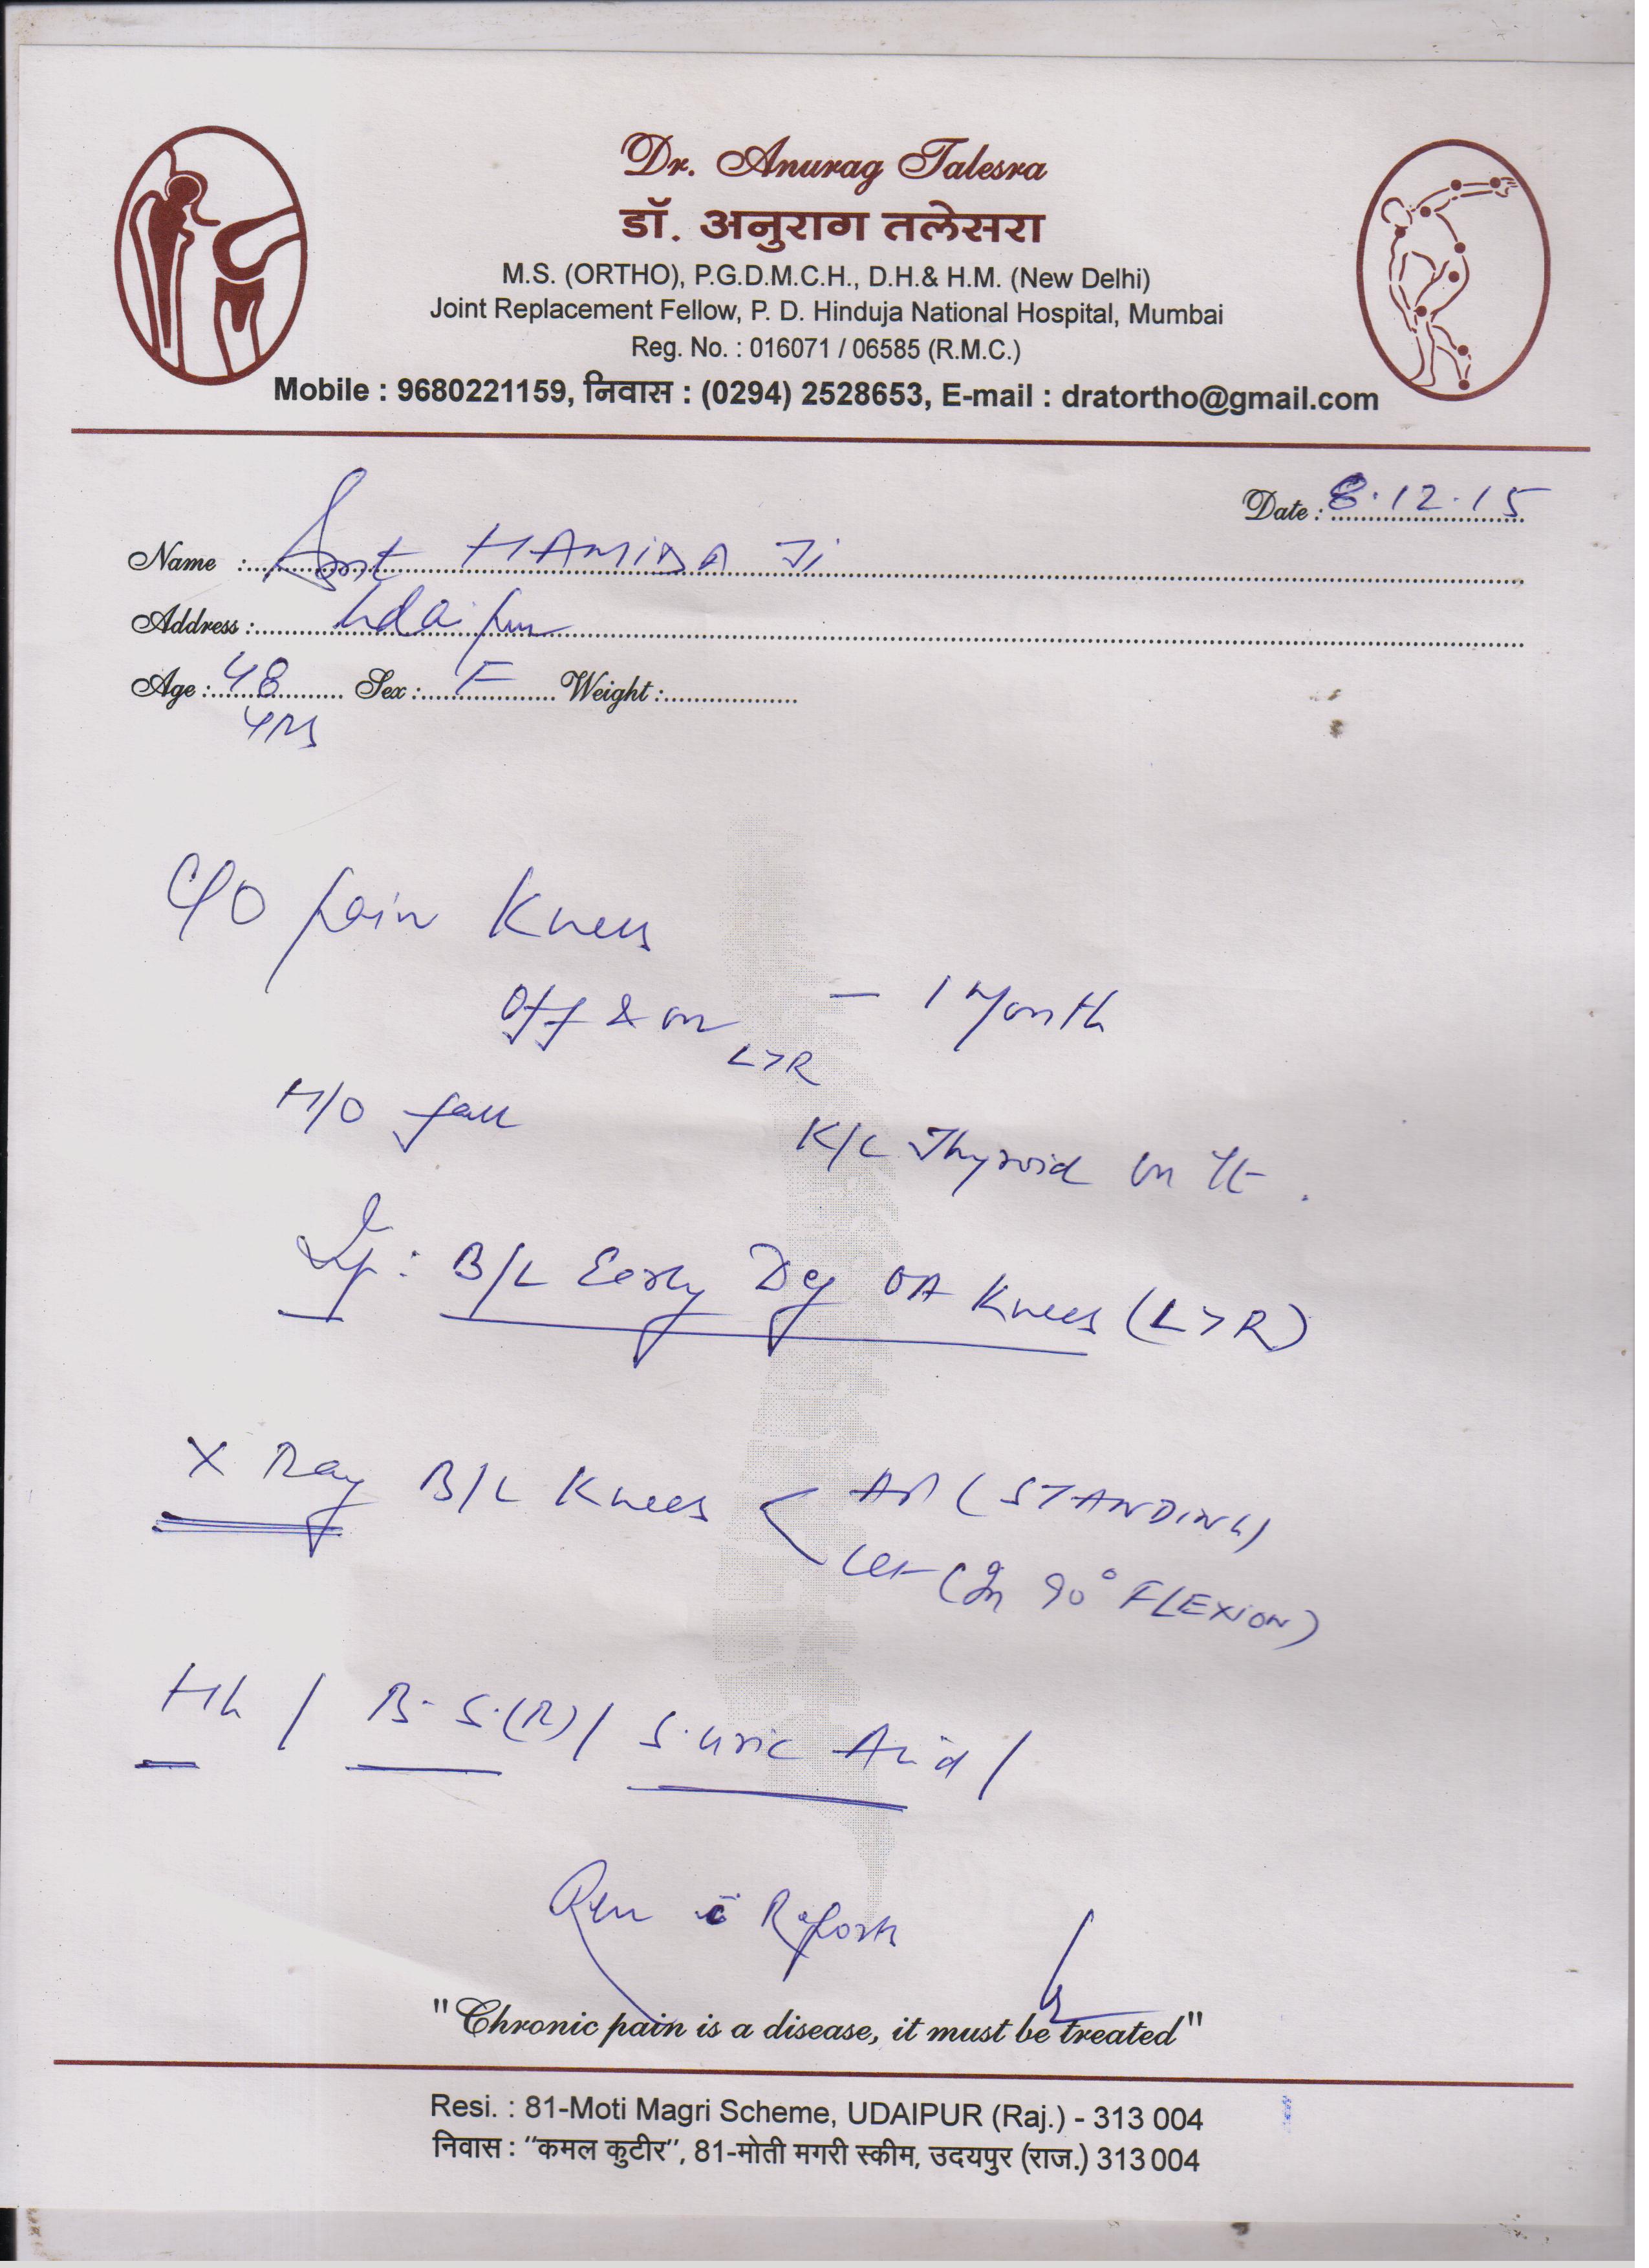 Dr. Anurag Talesra
डॉ. अनुराग तलेसरा
M.S. (ORTHO), P.G.D.M.C.H., D.H.& H.M. (New Delhi)
Joint Replacement Fellow, P. D. Hinduja National Hospital, Mumbai
Reg. No. : 016071 / 06585 (R.M.C.)
Mobile : 9680221159, निवास : (0294) 2528653, E-mail : dratortho@gmail.com
Date : 8.12.15
Name : Smt HAMIDA Ji
Address : Udaipur
Age : 48 Sex : F Weight :
yrs
C/O pain Knees
Off & on - 1 Month
L>R
H/O fall
K/C Thyroid on Tt.
Imp: B/L Early Deg OA Knees (L>R)
X Ray B/L Knees < AP (STANDING)
Lat (In 90° FLEXION)
Hb / B.S.(R) / S.Uric Acid /
Rev c̄ Reports
"Chronic pain is a disease, it must be treated"
Resi. : 81-Moti Magri Scheme, UDAIPUR (Raj.) - 313 004
निवास : "कमल कुटीर", 81-मोती मगरी स्कीम, उदयपुर (राज.) 313 004